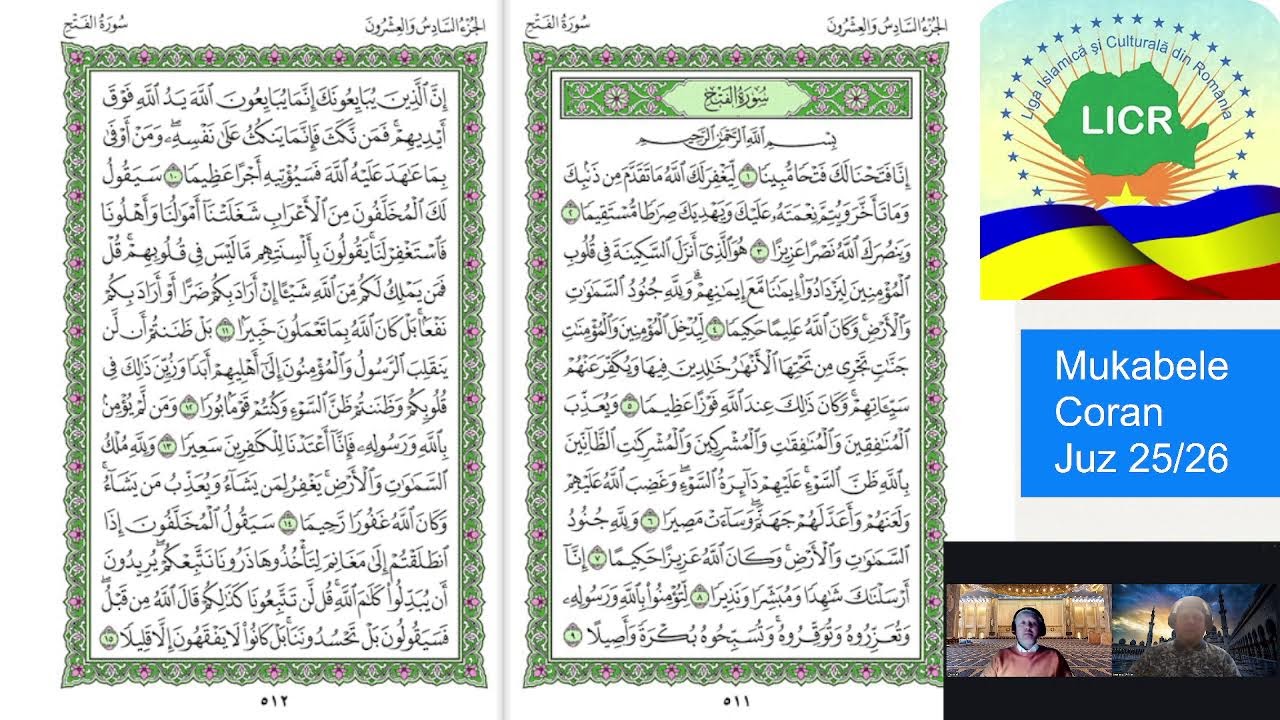 سُورَةُ الفَتْحِ
الجُزْءُ السَّادِسُ وَالعِشْرُونَ
سُورَةُ الفَتْحِ
بِسْمِ ٱللَّهِ ٱلرَّحْمَٰنِ ٱلرَّحِيمِ
إِنَّا فَتَحْنَا لَكَ فَتْحًا مُّبِينًا ١ لِّيَغْفِرَ لَكَ ٱللَّهُ مَا تَقَدَّمَ مِن ذَنۢبِكَ
وَمَا تَأَخَّرَ وَيُتِمَّ نِعْمَتَهُۥ عَلَيْكَ وَيَهْدِيَكَ صِرَٰطًا مُّسْتَقِيمًا ٢
وَيَنصُرَكَ ٱللَّهُ نَصْرًا عَزِيزًا ٣ هُوَ ٱلَّذِىٓ أَنزَلَ ٱلسَّكِينَةَ فِى قُلُوبِ
ٱلْمُؤْمِنِينَ لِيَزْدَادُوٓا۟ إِيمَٰنًا مَّعَ إِيمَٰنِهِمْ ۗ وَلِلَّهِ جُنُودُ ٱلسَّمَٰوَٰتِ
وَٱلْأَرْضِ ۚ وَكَانَ ٱللَّهُ عَلِيمًا حَكِيمًا ٤ لِّيُدْخِلَ ٱلْمُؤْمِنِينَ وَٱلْمُؤْمِنَٰتِ
جَنَّٰتٍ تَجْرِى مِن تَحْتِهَا ٱلْأَنْهَٰرُ خَٰلِدِينَ فِيهَا وَيُكَفِّرَ عَنْهُمْ
سَيِّـَٔاتِهِمْ ۚ وَكَانَ ذَٰلِكَ عِندَ ٱللَّهِ فَوْزًا عَظِيمًا ٥ وَيُعَذِّبَ
ٱلْمُنَٰفِقِينَ وَٱلْمُنَٰفِقَٰتِ وَٱلْمُشْرِكِينَ وَٱلْمُشْرِكَٰتِ ٱلظَّآنِّينَ
بِٱللَّهِ ظَنَّ ٱلسَّوْءِ ۚ عَلَيْهِمْ دَآئِرَةُ ٱلسَّوْءِ ۖ وَغَضِبَ ٱللَّهُ عَلَيْهِمْ
وَلَعَنَهُمْ وَأَعَدَّ لَهُمْ جَهَنَّمَ ۖ وَسَآءَتْ مَصِيرًا ٦ وَلِلَّهِ جُنُودُ
ٱلسَّمَٰوَٰتِ وَٱلْأَرْضِ ۚ وَكَانَ ٱللَّهُ عَزِيزًا حَكِيمًا ٧ إِنَّآ
أَرْسَلْنَٰكَ شَٰهِدًا وَمُبَشِّرًا وَنَذِيرًا ٨ لِّتُؤْمِنُوا۟ بِٱللَّهِ وَرَسُولِهِۦ
وَتُعَزِّرُوهُ وَتُوَقِّرُوهُ ۚ وَتُسَبِّحُوهُ بُكْرَةً وَأَصِيلًا ٩
٥١١
سُورَةُ الفَتْحِ
الجُزْءُ السَّادِسُ وَالعِشْرُونَ
إِنَّ ٱلَّذِينَ يُبَايِعُونَكَ إِنَّمَا يُبَايِعُونَ ٱللَّهَ يَدُ ٱللَّهِ فَوْقَ
أَيْدِيهِمْ ۚ فَمَن نَّكَثَ فَإِنَّمَا يَنكُثُ عَلَىٰ نَفْسِهِۦ ۖ وَمَنْ أَوْفَىٰ
بِمَا عَٰهَدَ عَلَيْهُ ٱللَّهَ فَسَيُؤْتِيهِ أَجْرًا عَظِيمًا ١٠ سَيَقُولُ
لَكَ ٱلْمُخَلَّفُونَ مِنَ ٱلْأَعْرَابِ شَغَلَتْنَآ أَمْوَٰلُنَا وَأَهْلُونَا
فَٱسْتَغْفِرْ لَنَا ۚ يَقُولُونَ بِأَلْسِنَتِهِم مَّا لَيْسَ فِى قُلُوبِهِمْ ۚ قُلْ
فَمَن يَمْلِكُ لَكُم مِّنَ ٱللَّهِ شَيْـًٔا إِنْ أَرَادَ بِكُمْ ضَرًّا أَوْ أَرَادَ بِكُمْ
نَفْعًۢا ۚ بَلْ كَانَ ٱللَّهُ بِمَا تَعْمَلُونَ خَبِيرًۢا ١١ بَلْ ظَنَنتُمْ أَن لَّن
يَنقَلِبَ ٱلرَّسُولُ وَٱلْمُؤْمِنُونَ إِلَىٰٓ أَهْلِيهِمْ أَبَدًا وَزُيِّنَ ذَٰلِكَ فِى
قُلُوبِكُمْ وَظَنَنتُمْ ظَنَّ ٱلسَّوْءِ وَكُنتُمْ قَوْمًۢا بُورًا ١٢ وَمَن لَّمْ يُؤْمِنۢ
بِٱللَّهِ وَرَسُولِهِۦ فَإِنَّآ أَعْتَدْنَا لِلْكَٰفِرِينَ سَعِيرًا ١٣ وَلِلَّهِ مُلْكُ
ٱلسَّمَٰوَٰتِ وَٱلْأَرْضِ ۚ يَغْفِرُ لِمَن يَشَآءُ وَيُعَذِّبُ مَن يَشَآءُ ۚ
وَكَانَ ٱللَّهُ غَفُورًا رَّحِيمًا ١٤ سَيَقُولُ ٱلْمُخَلَّفُونَ إِذَا
ٱنطَلَقْتُمْ إِلَىٰ مَغَانِمَ لِتَأْخُذُوهَا ذَرُونَا نَتَّبِعْكُمْ ۖ يُرِيدُونَ
أَن يُبَدِّلُوا۟ كَلَٰمَ ٱللَّهِ ۚ قُل لَّن تَتَّبِعُونَا كَذَٰلِكُمْ قَالَ ٱللَّهُ مِن قَبْلُ ۖ
فَسَيَقُولُونَ بَلْ تَحْسُدُونَنَا ۚ بَلْ كَانُوا۟ لَا يَفْقَهُونَ إِلَّا قَلِيلًا ١٥
٥١٢
Liga Islamică și Culturală din România
LICR
Mukabele
Coran
Juz 25/26